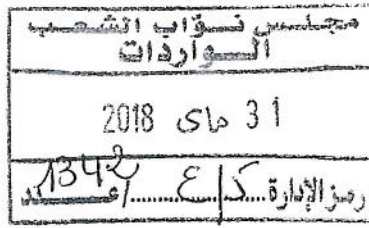 مجلس نواب الشعب
الواردات
31 ماي 2018
رمز الإدارة ك/ع /عدد 1342